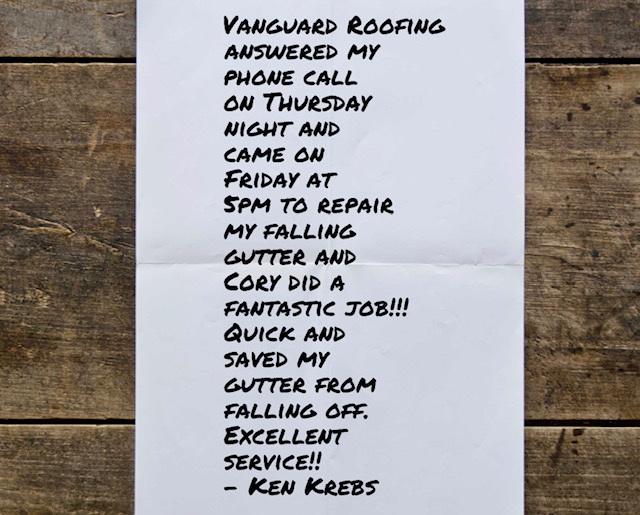 Vanguard Roofing
answered my
phone call
on Thursday
night and
came on
Friday at
5pm to repair
my falling
gutter and
Cory did a
fantastic job!!!
Quick and
saved my
gutter from
falling off.
Excellent
service!!
- Ken Krebs